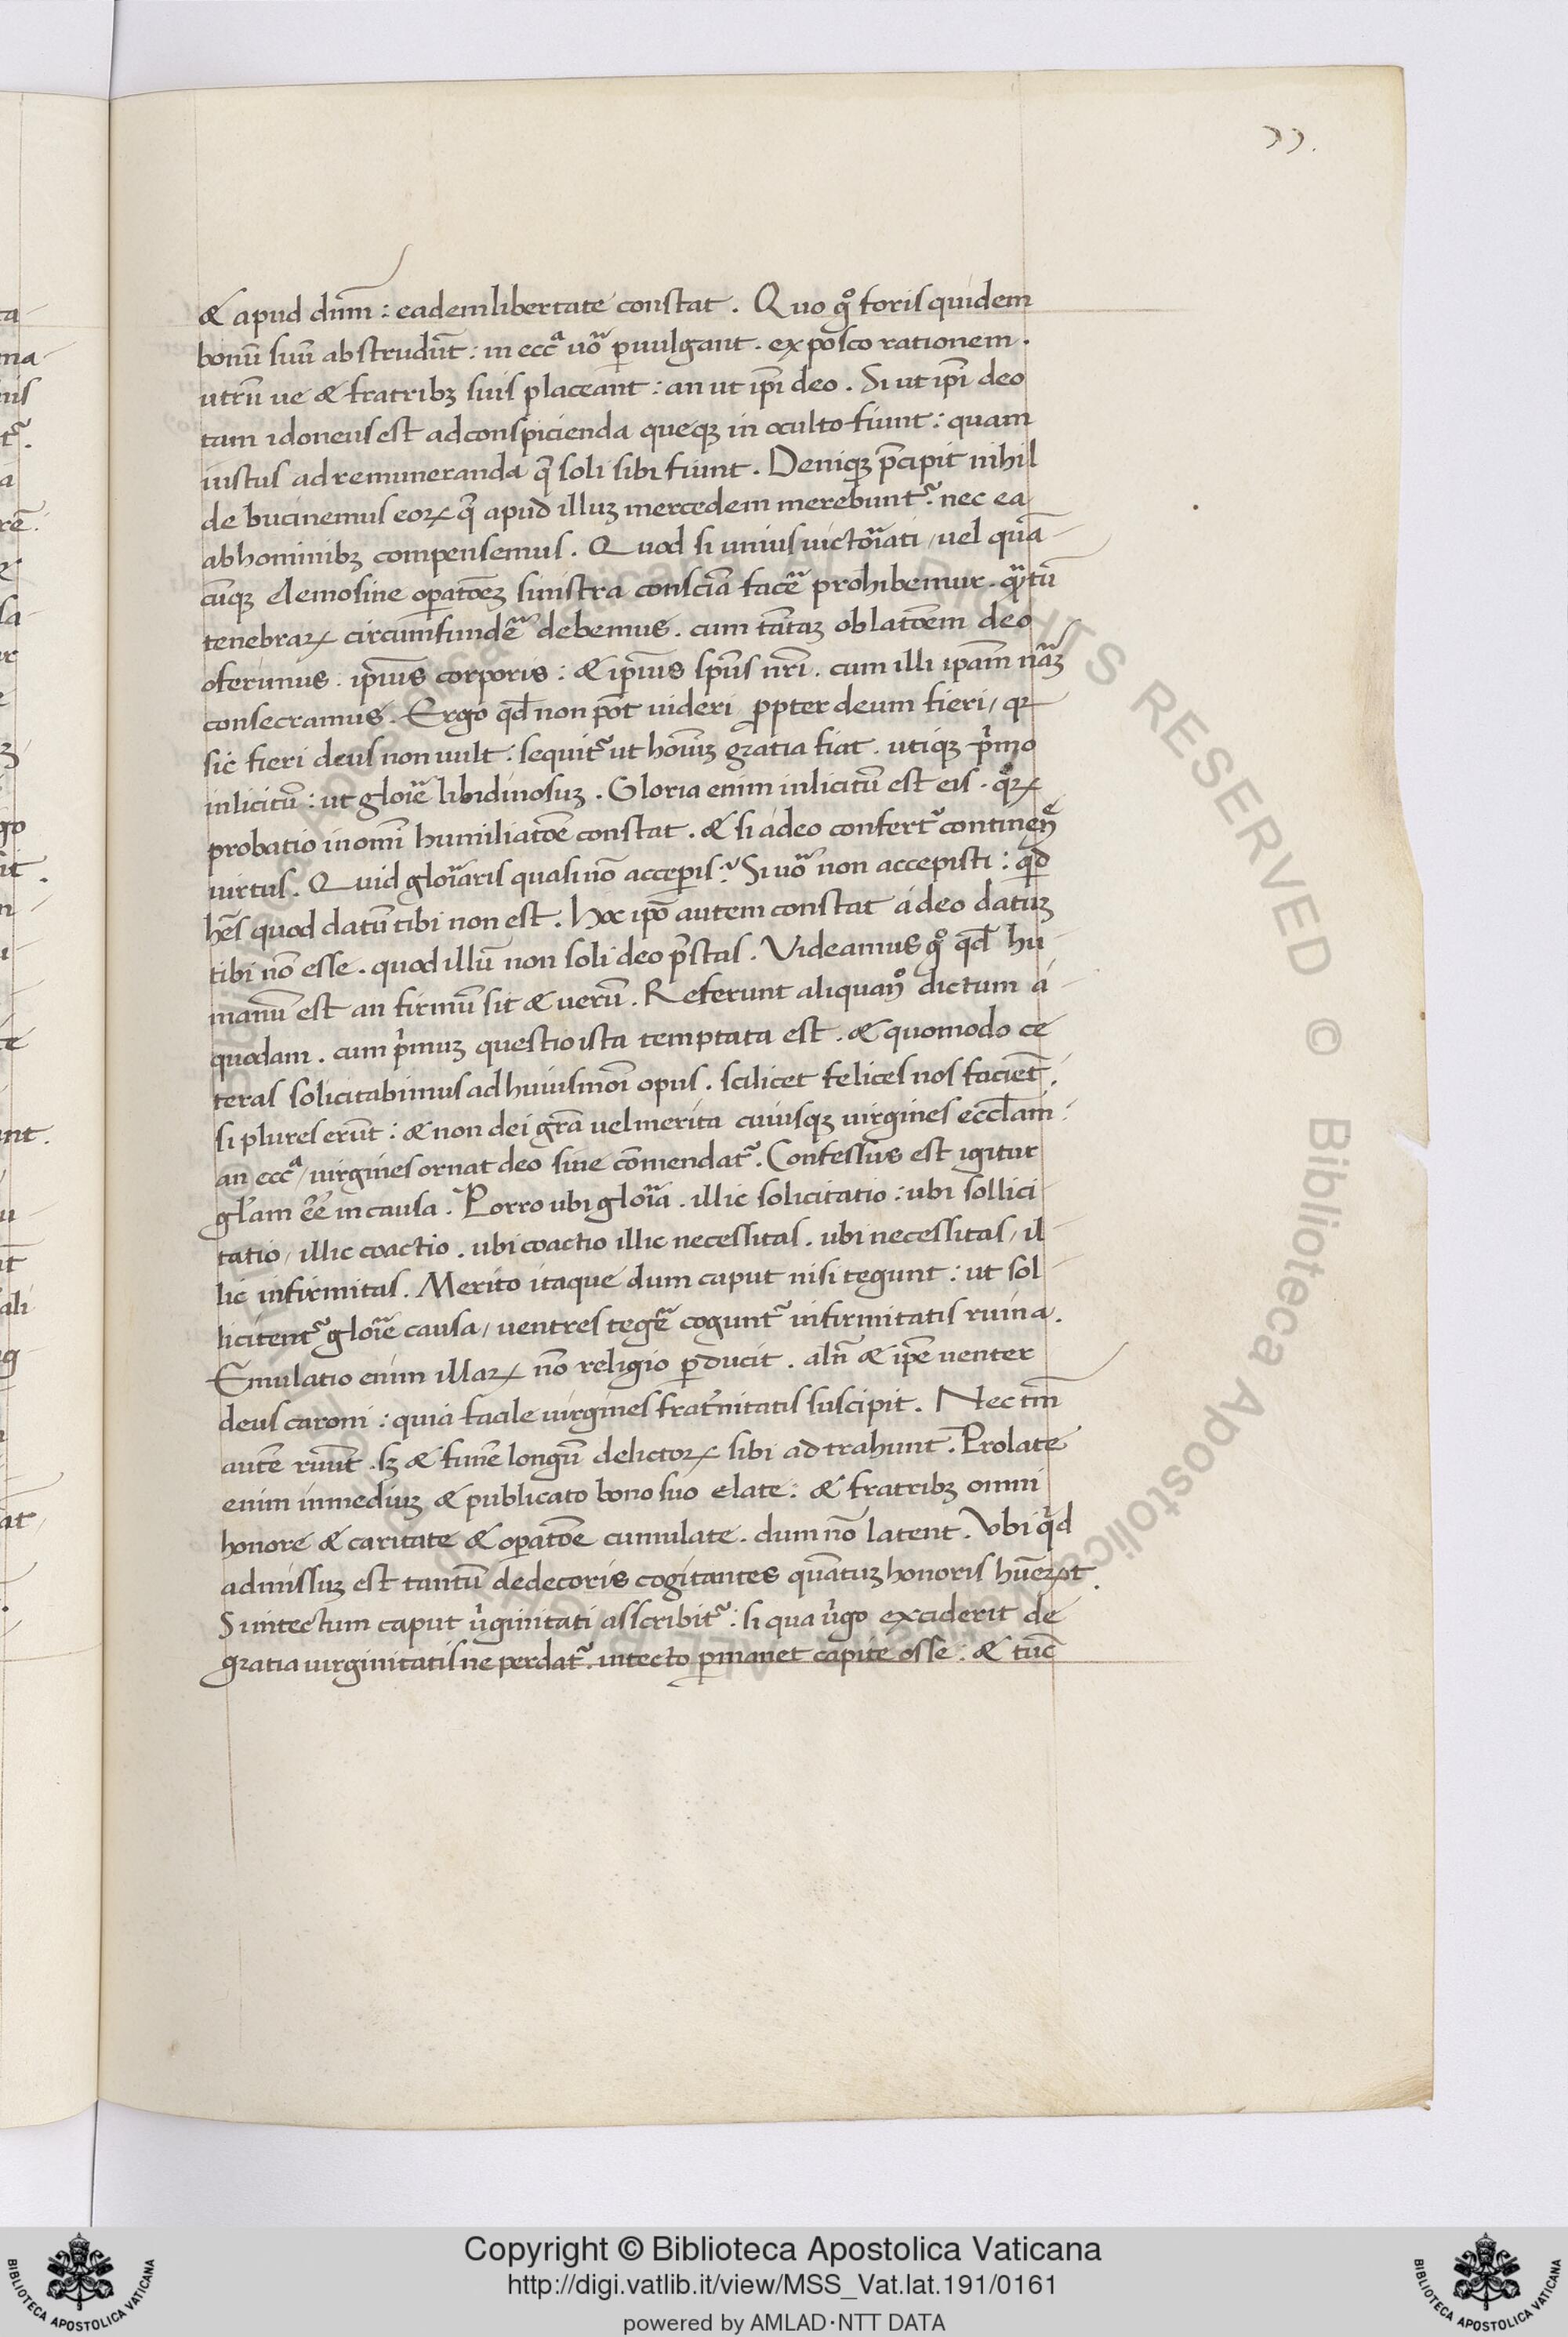 77.
& apud dn̄m : eadem libertate constat . Quo gº foris quidem
bonū suū abstrudūt : in eccᵃ uō ꝑuulgant . exposco rationem .
utrū ue & fratribꝫ suis placeant : an ut ip̄i deo . Si ut ip̄i deo
tam idoneus est ad conspicienda queqꝫ in oculto fiunt : quam
iustus ad remuneranda q̄ soli sibi fiunt . Deniqꝫ p̄cipit nihil
de bucinemus eoꝝ q̄ apud illuꝫ mercedem merebuntᷣ . nec ea
ab hominibꝫ compensemus . Quod si unius uictoriati / uel quā-
cūqꝫ elemosine oꝑatōeꝫ sinistra consciā facē prohibemur . qᷓtū
tenebraꝝ circumfundē debemus . cum tātaꝫ oblatōem deo
oferimus . ip̄ius corporis : & ip̄ius sp̄us nr̄i . cum illi ipam nāꝫ
consecramus . Ergo qd̄ non pōt uideri ꝓpter deum fieri / qꝛ
sic fieri deus non uult : sequitᷣ ut hoīuꝫ gratia fiat . utiqꝫ pͥmo
inlicitū : ut gloīe libidinosuꝫ . Gloria enim inlicitū est eis . qͦꝝ
probatio in omī humiliatōe constat . & si a deo confertᷣ continen̄ᵉ
uirtus . Quid gloīaris quasi nō acceꝑis ? Si uō non accepisti : qͥd
hēs quod datū tibi non est . Hoc ip̄o autem constat a deo datuꝫ
tibi nō esse . quod illū non soli deo p̄stas . Videamus gº qd̄ hu-
manū est an firmū sit & uerū . Referunt aliquan̄º dictum a-
quodam . cum pͥmuꝫ questio ista temptata est . & quomodo ce
teras solicitabimus ad huiusmōi opus . scilicet felices nos faciēt .
si plures erūt : & non dei grā uel merita cuiusqꝫ uirgines eccl̄am :
an eccᵃ / uirgines ornat deo siue cōmendatᷣ . Confessus est igitur
gl̄am eē̄ in causa . Porro ubi gloīa . illic solicitatio : ubi sollici-
tatio / illic coactio . ubi coactio illic necessitas . ubi necessitas / il-
lic infirmitas . Merito itaque dum caput nisi tegunt : ut sol-
licitentᷣ gloīe causa / uentres tegē coguntᷣ infirmitatis ruina .
Emulatio enim illaꝝ nō religio ꝓducit . aln̄ & ip̄e uenter
deus caroni : quia facile uirgines frat͛nitatis suscipit . Nec tm̄
autē ruūt . sꝫ & funē longū delictoꝝ sibi ad trahunt . Prolate
enim in mediuꝫ & publicato bono suo elate : & fratribꝫ omni
honore & caritate & oꝑatōe cumulate . dum nō latent . Vbi qͥd
admissuꝫ est tantū dedecoris cogitantes quātuꝫ honoris hūerꝰt .
Si intectum caput uͥginitati asscribitᷣ : si qua uͥgo exciderit de
gratia uirginitatis ne perdatᷣ . intecto ꝑmanet capite osse : & tūc
Copyright © Biblioteca Apostolica Vaticana
http://digi.vatlib.it/view/MSS_Vat.lat.191/0161
powered by AMLAD·NTT DATA